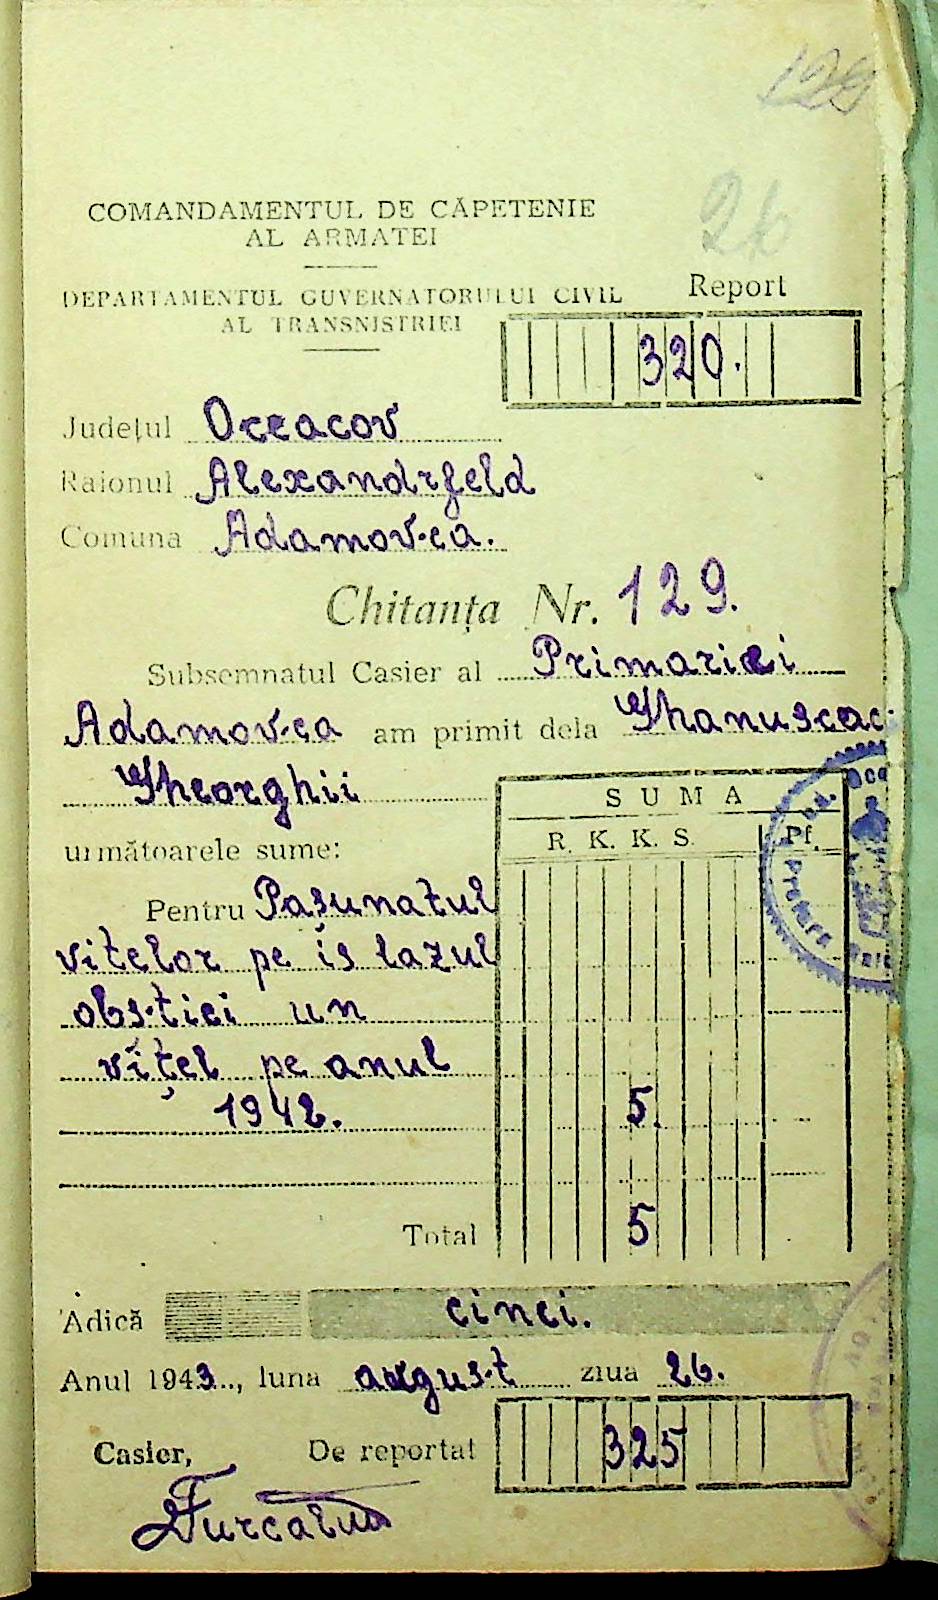 129
26
COMANDAMENTUL DE CĂPETENIE
AL ARMATEI
DEPARTAMENTUL GUVERNATORULUI CIVIL
AL TRANSNISTRIEI
Report
320.
Județul Oceacov
Raionul Alexandrfeld
Comuna Adamovca.
Chitanța Nr. 129.
Subsemnatul Casier al Primariei
Adamovca am primit dela Ghanuscac
Gheorghii
următoarele sume:
SUMA
R. K. K. S. Pf.
Pentru Pasunatul
vitelor pe is lazul
obstiei un
vițel pe anul
1942. 5.
Total 5
Adică cinci.
Anul 1943., luna august ziua 26.
Casier, De reportat 325